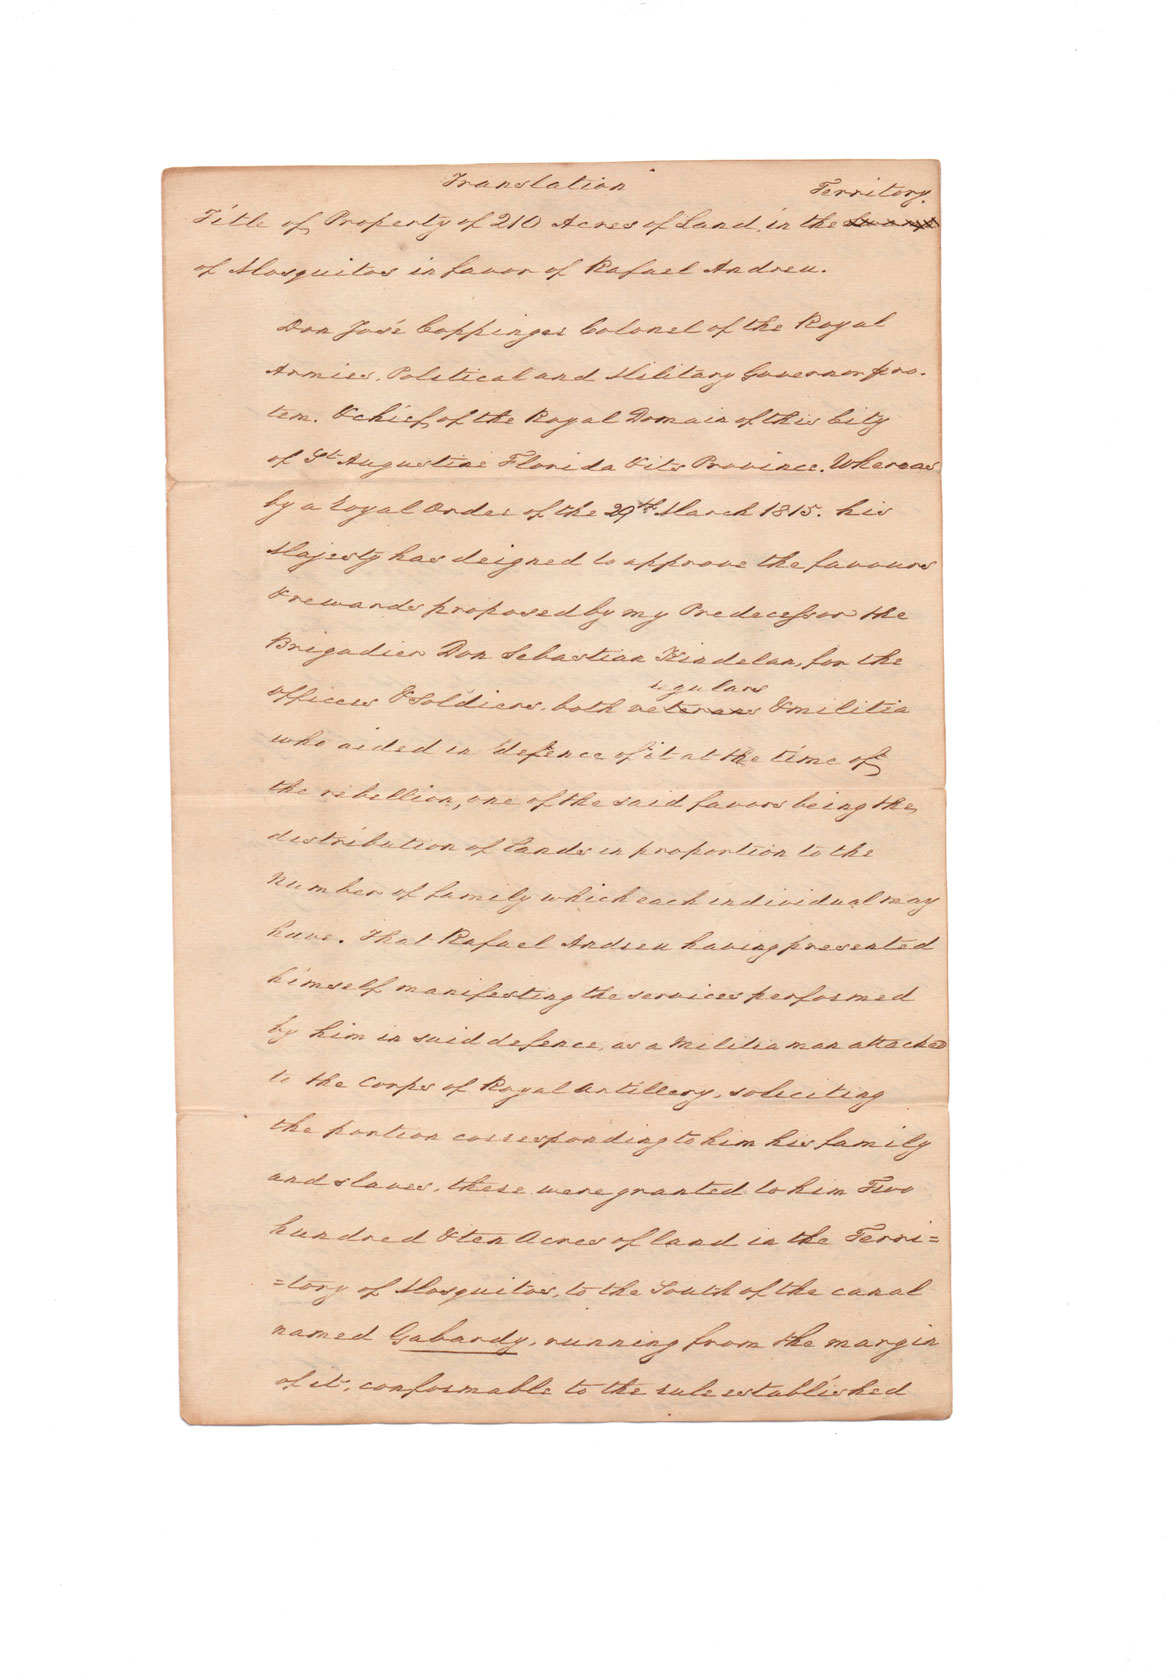 Translation
Territory.
Title of Property of 210 Acres of Land, in the
of Mosquitos in favor of Rafael Andreu.
Don José Coppinger Colonel of the Royal
Armies, Political and Military Governor pro.
tem. & chief of the Royal Domain of this City
of St. Augustine Florida & its Province. Whereas
by a Royal Order of the 29th March 1815. his
Majesty has deigned to approve the favours
& rewards proposed by my Predecessor the
Brigadier Don Sebastian Kindelan, for the
regulars
officers & Soldiers, both veterans & militia
who aided in defence of it at the time of
the rebellion, one of the said favors being the
distribution of Lands in proportion to the
number of family which each individual may
have. That Rafael Andreu having presented
himself manifesting the services performed
by him in said defence, as a Militia man attached
to the Corps of Royal Artillery, soliciting
the portion corresponding to him his family
and slaves, these were granted to him Two
hundred & ten Acres of land in the Terri=
=tory of Mosquitos, to the South of the canal
named Gabardy, running from the margin
of it, conformable to the rule established